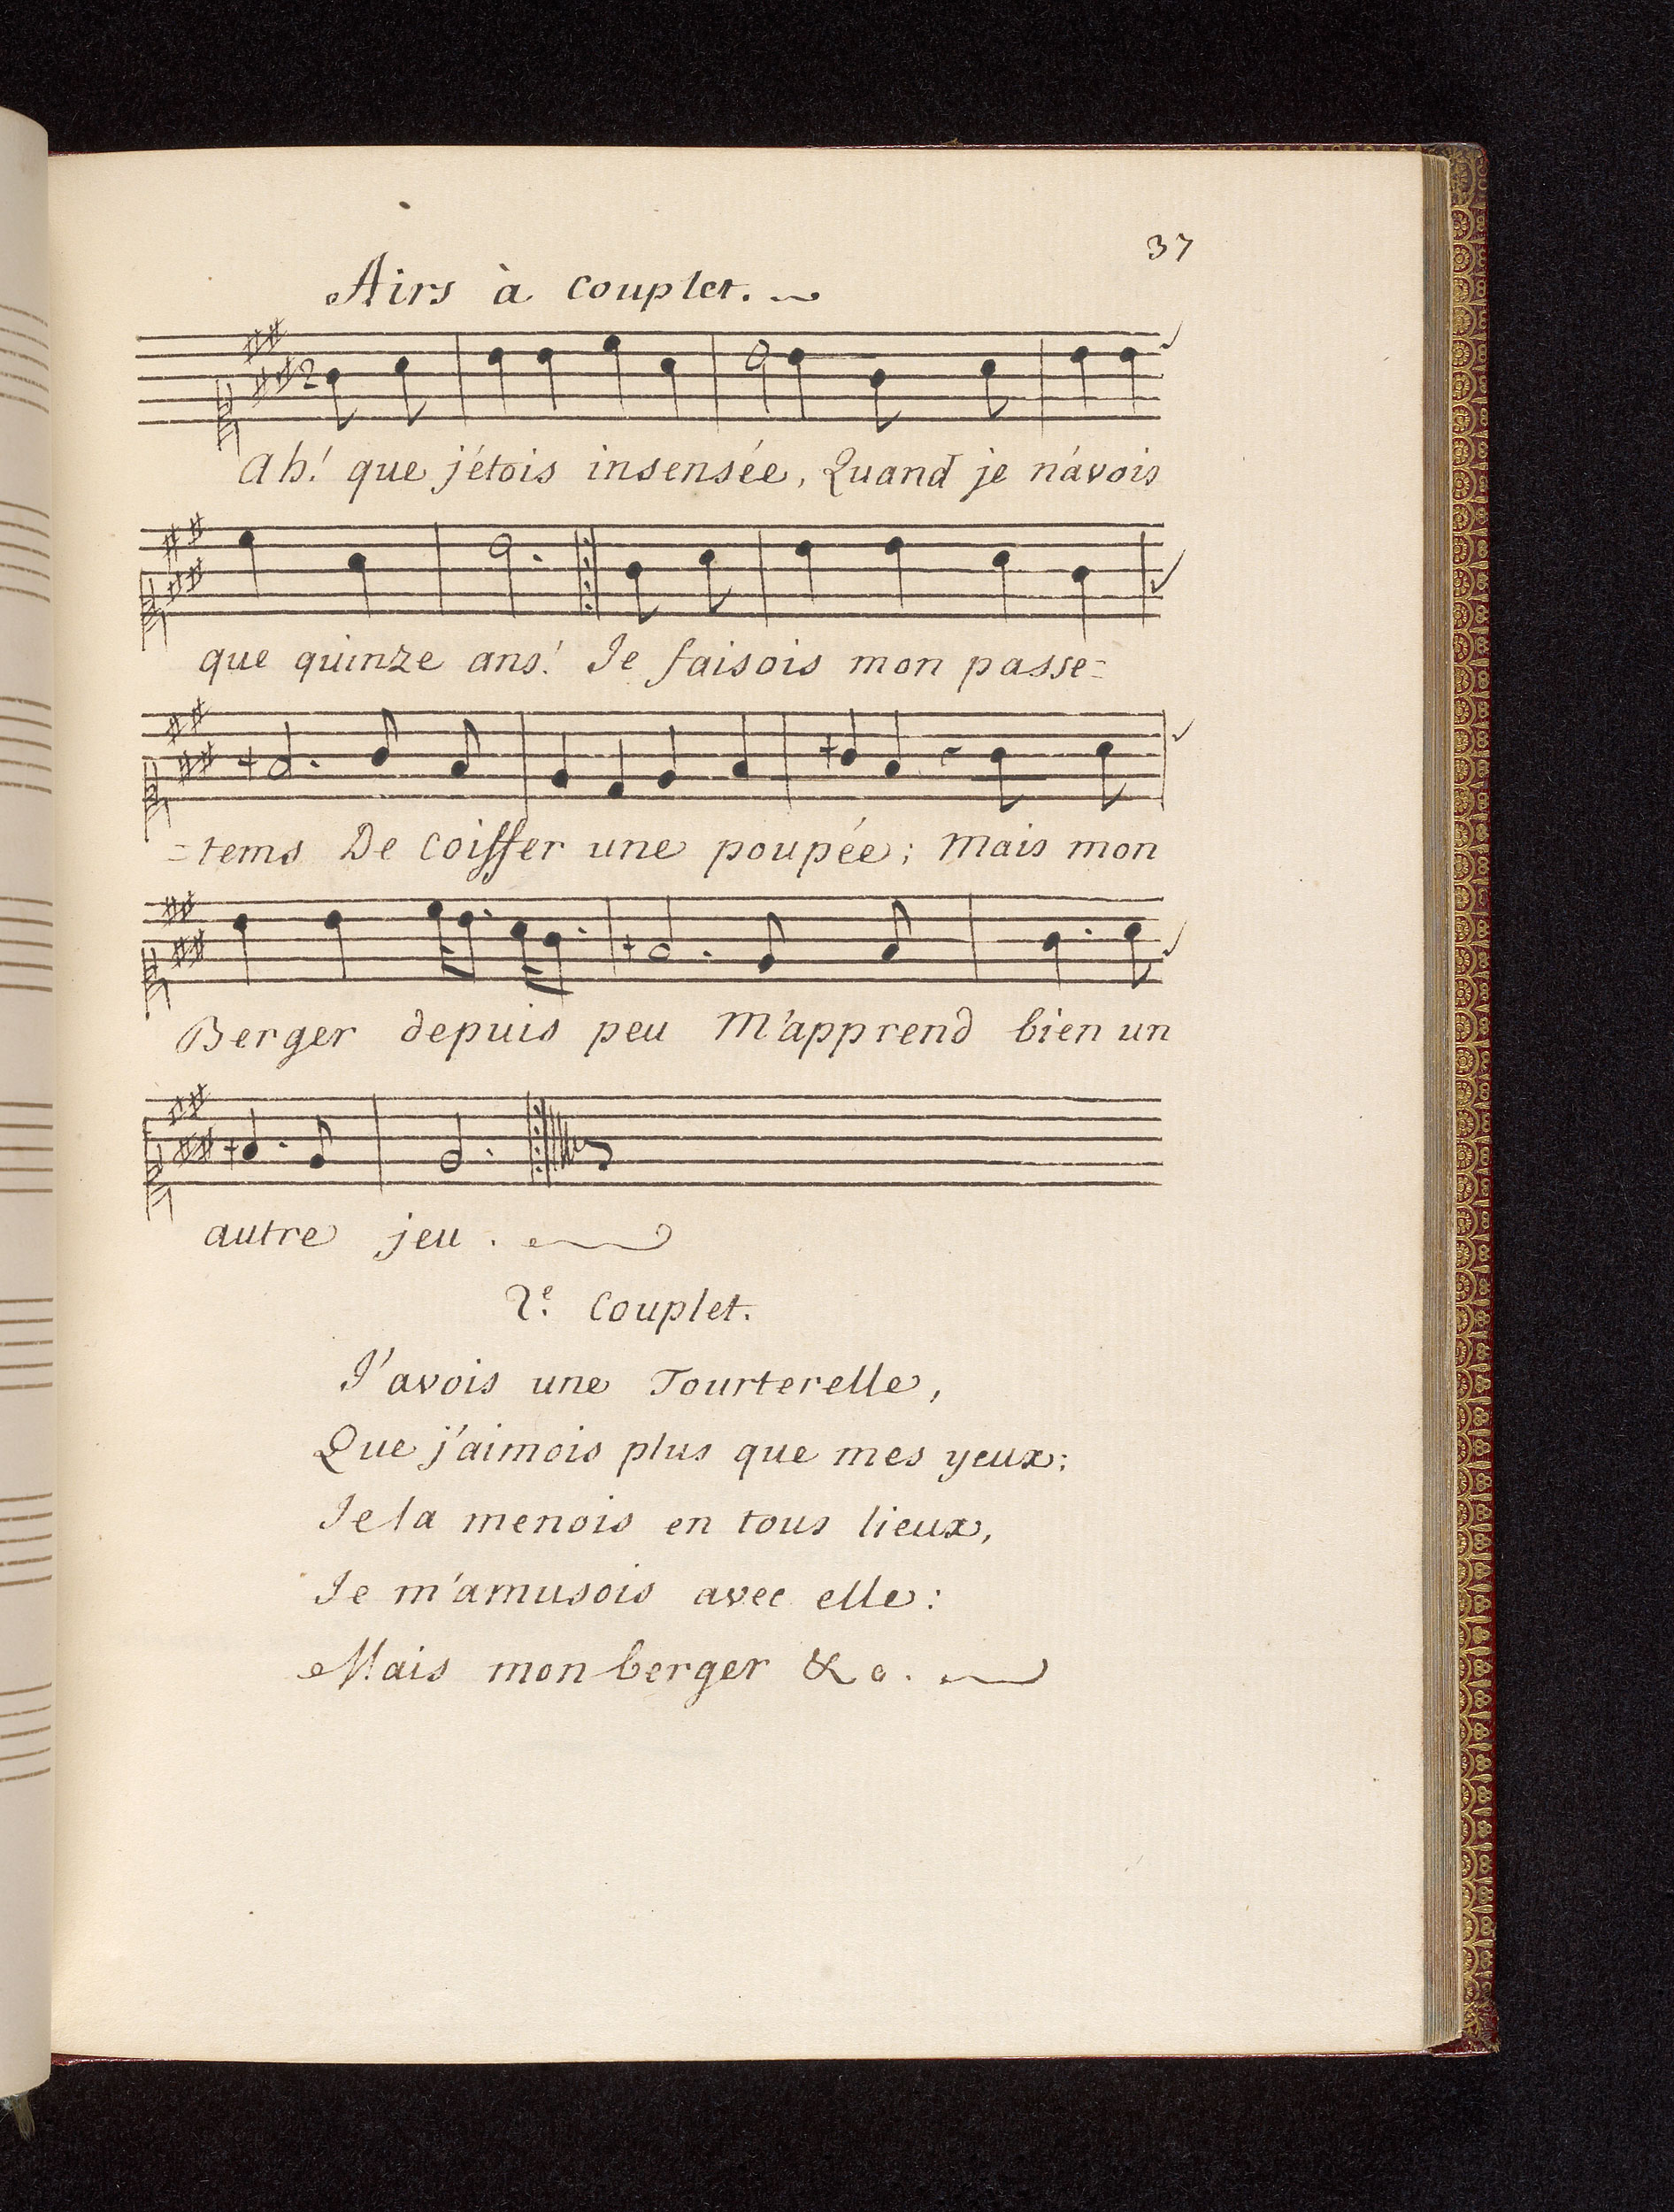 37
Airs à Couplet.
Ah! que j'étois insensée, Quand je n'avois
que quinze ans! Je faisois mon passe=
=tems De Coiffer une poupée; Mais mon
Berger depuis peu M'apprend bien un
autre jeu.
2e. Couplet.
J'avois une Tourterelle,
Que j'aimois plus que mes yeux;
Je la menois en tous lieux,
Je m'amusois avec elle:
Mais mon berger &c.